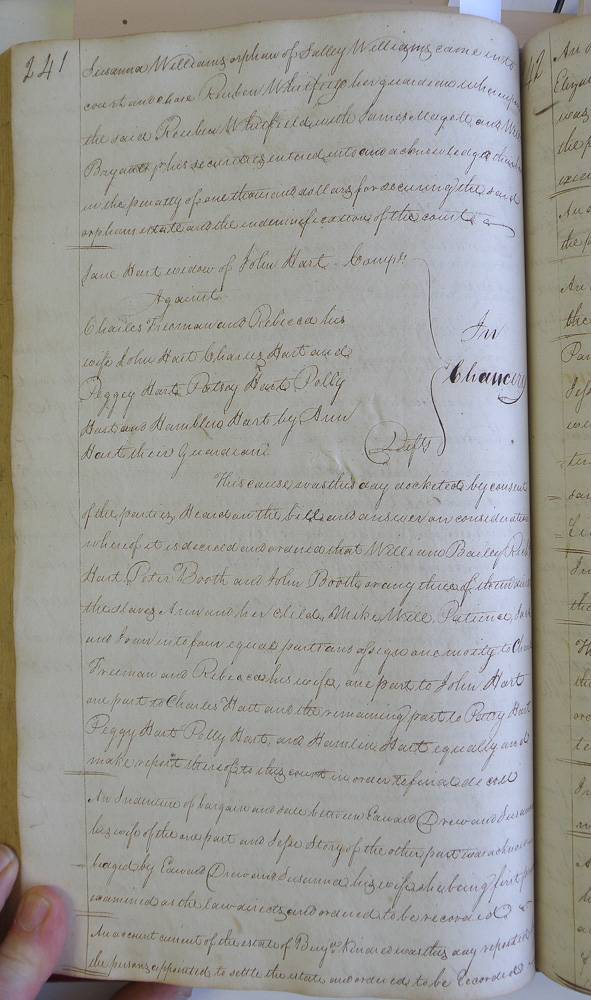 241
Susanna Williams orphan of Salley Williams came into
court and chose Reuben Whitfield her guardian whereupon
the said Reuben Whitfield with James Magett and
Bryant his securities entered into and acknowledged
in the penalty of one thousand dollars for securing the said
orphans estate and the indemnification of the court
Jane Hart widow of John Hart Compt.
Against
Charles Freeman and Rebecca his
wife John Hart Charles Hart and
Peggey Hart Patsay Hart Polly
Hart and Hamblin Hart by Ann
Hart their Guardian Defts
In
Chancery
This cause was this day docketed by consent
of the parties, Heard on the bill and answer on consideration
whereof it is decreed and ordered that William Bailey
Hart Peter Booth and John Booth or any three of them
the slaves Ann and her child, Mike, Will, Patience,
and into four equal parts and assign one moity to
Freeman and Rebecca his wife, one part to John Hart
one part to Charles Hart and the remaining part to Patsy Hart
Peggy Hart Polly Hart, and Hamlin Hart equally and
make report thereof to this court in order to final decree
An Indenture of bargain and sale between Edward Drew and Susanna
his wife of the one part and Jesse Story of the other part was acknow
ledged by Edward Drew and Susanna his wife she being first
examined as the law directs and ordered to be recorded
An account current of the estate of Benjn. Kindred was this day reported
the persons appointed to settle the estate and ordered to be recorded
42